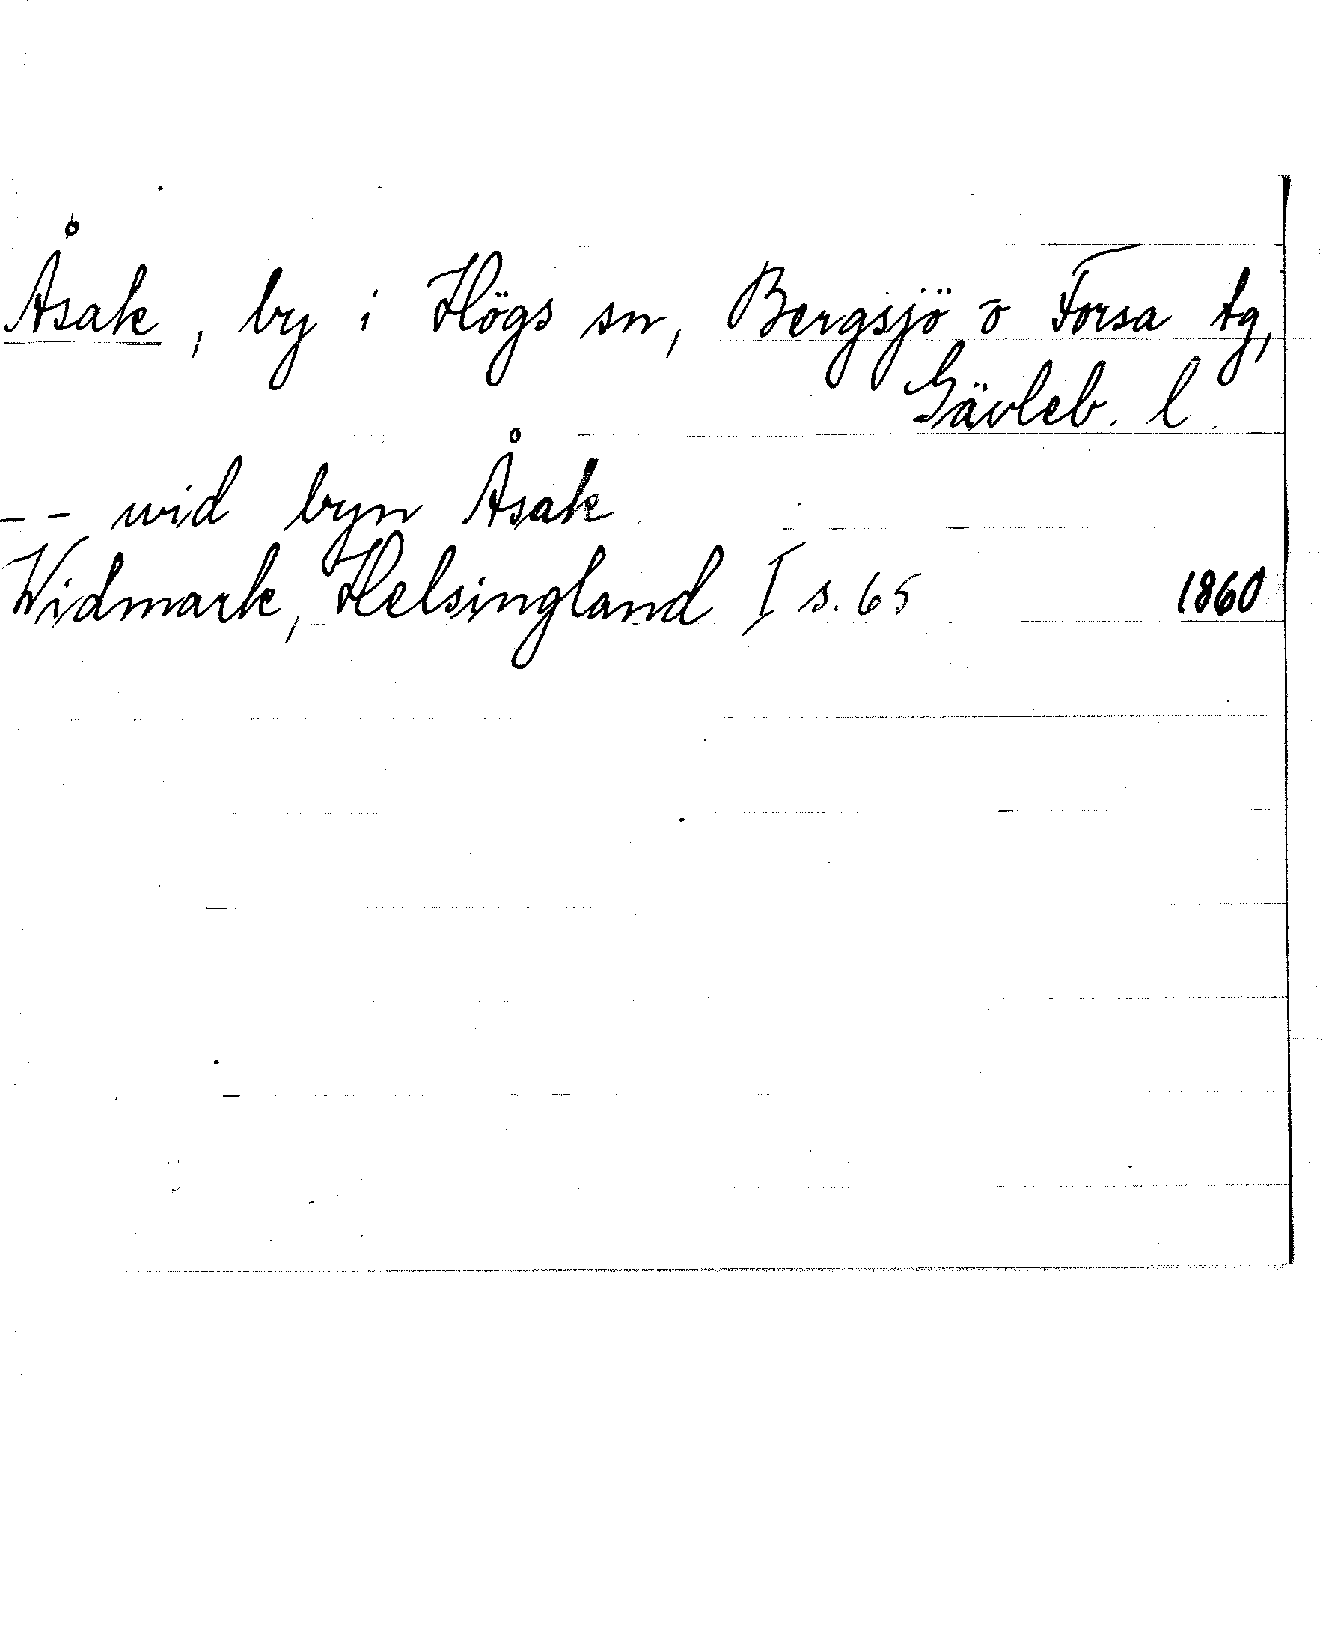 Åsak, by i Högs sn, Bergsjö o Forsa tg,
Gävleb. l.
-- wid byn Åsak
Widmark, Helsingland I s. 65 1860